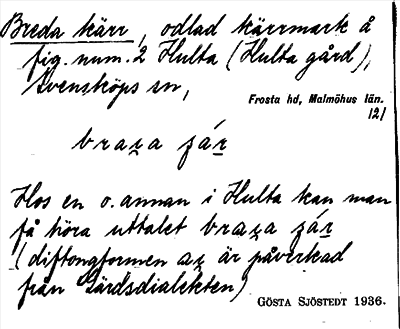 Breda kärr, odlad kärrmark å
fig. num. 2 Hulta (Hulta gård),
Svensköps sn,
Frosta hd, Malmöhus län.
121
braza ʃár
Hos en o. annan i Hulta kan man
få höra uttalet braza ʃár
(diftongformen az är påverkad
från Färsdialekten)
GÖSTA SJÖSTEDT 1936.